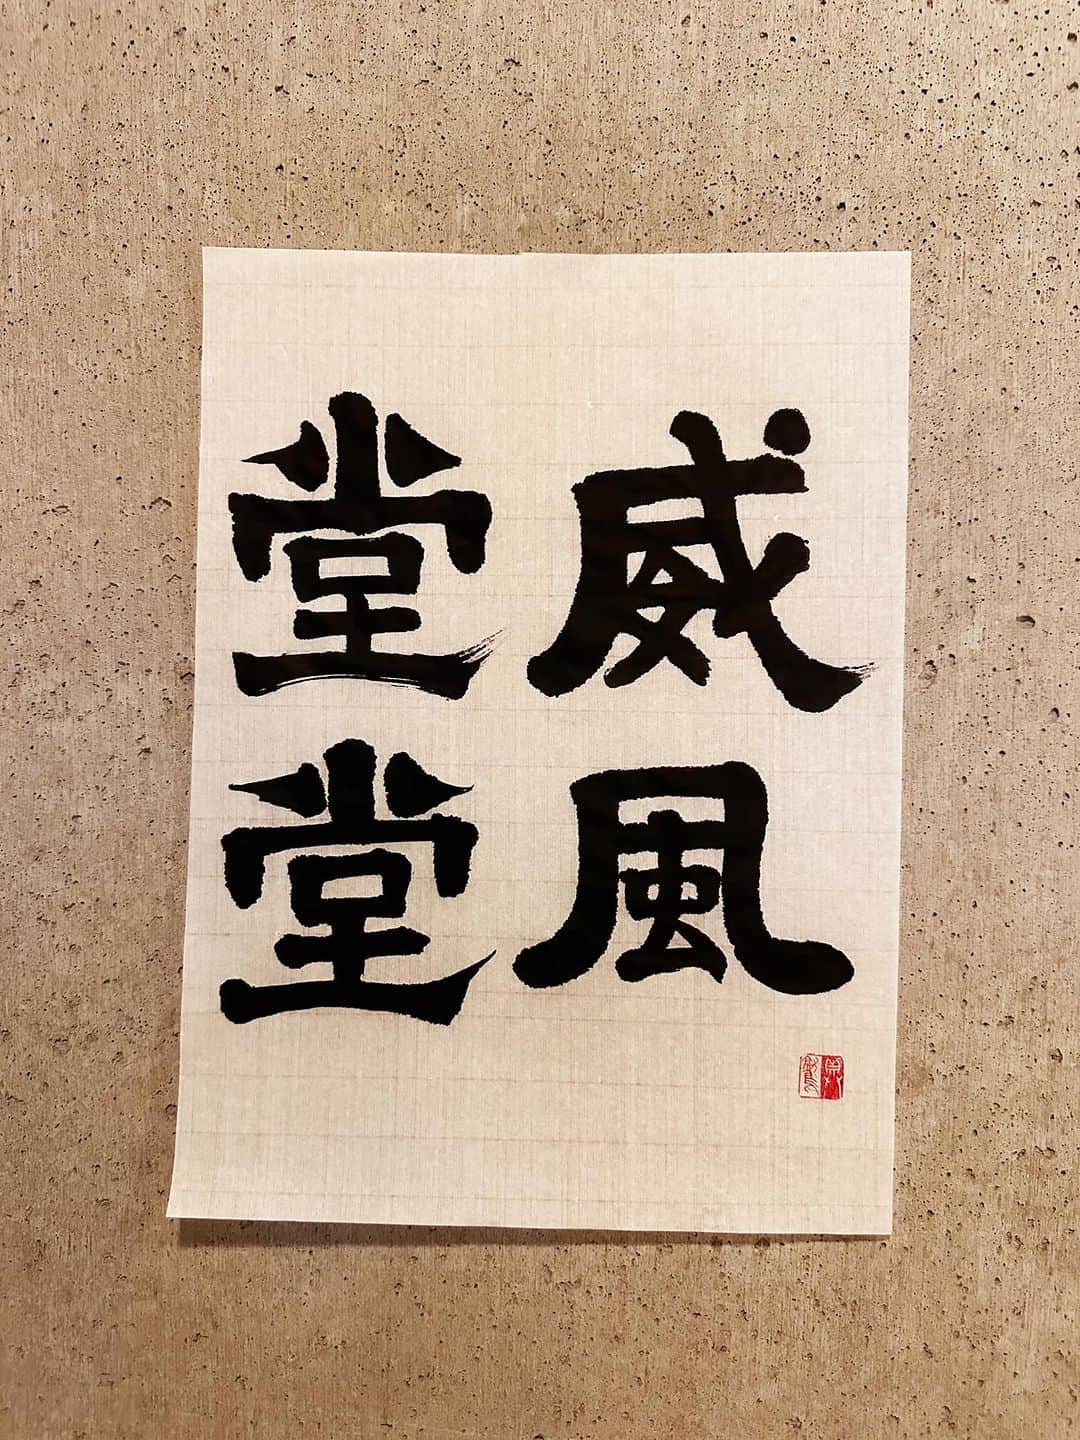 威風
堂堂